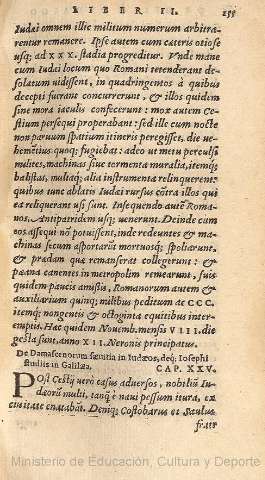 LIBER II. 255
Iudæi omnem illic militum numerum arbitra-
rentur remanere. Ipse autem cum cæteris otiose
usq; ad XXX. stadia progreditur. Vnde mane
cum Iudæi locum quo Romani tetenderant de-
solatum uidissent, in quadringentos à quibus
decepti fuerant concurrerunt, & illos quidem
sine mora iaculis confecerunt: mox autem Ce-
stium persequi properabant: sed ille cum nocte
non paruum spatium itineris peregisset, die ue-
hemētius quoq; fugiebat: adeo ut metu perculsi
milites, machinas siue tormenta muralia, itemq;
balistas, multaq; alia instrumenta relinquerent
quibus tunc ablatis Iudæi rursus cōtra illos qui
ea reliquerant usi sunt. Insequendo autē Roma-
nos, Antipatridem usq; uenerunt. Deinde cum
eos assequi nō potuissent, inde redeuntes & ma-
chinas secum asportarūt mortuosq; spoliarunt,
& prædam quæ remanserat collegerunt: &
pæana canentes in metropolim remearūt, suis
quidem paucis amissis, Romanorum autem &
auxiliarium quinq; milibus peditum ac CCC.
itemq; nongentis & octoginta equitibus inter-
emptis. Hæc quidem Nouemb. mensis VIII. die
gesta sunt, anno XII. Neronis principatus.
De Damascenorum sæuitia in Iudæos, deq; Iosephi
studiis in Galilæa. CAP. XXV.
POst Cestij uero casus aduersos, nobiliū Iu-
dæorū multi, tanq̄ e naui pessum itura, ex
ciuitate enatabāt. Deniq; Costobarus et Saulus
frair
Ministerio de Educación, Cultura y Deporte